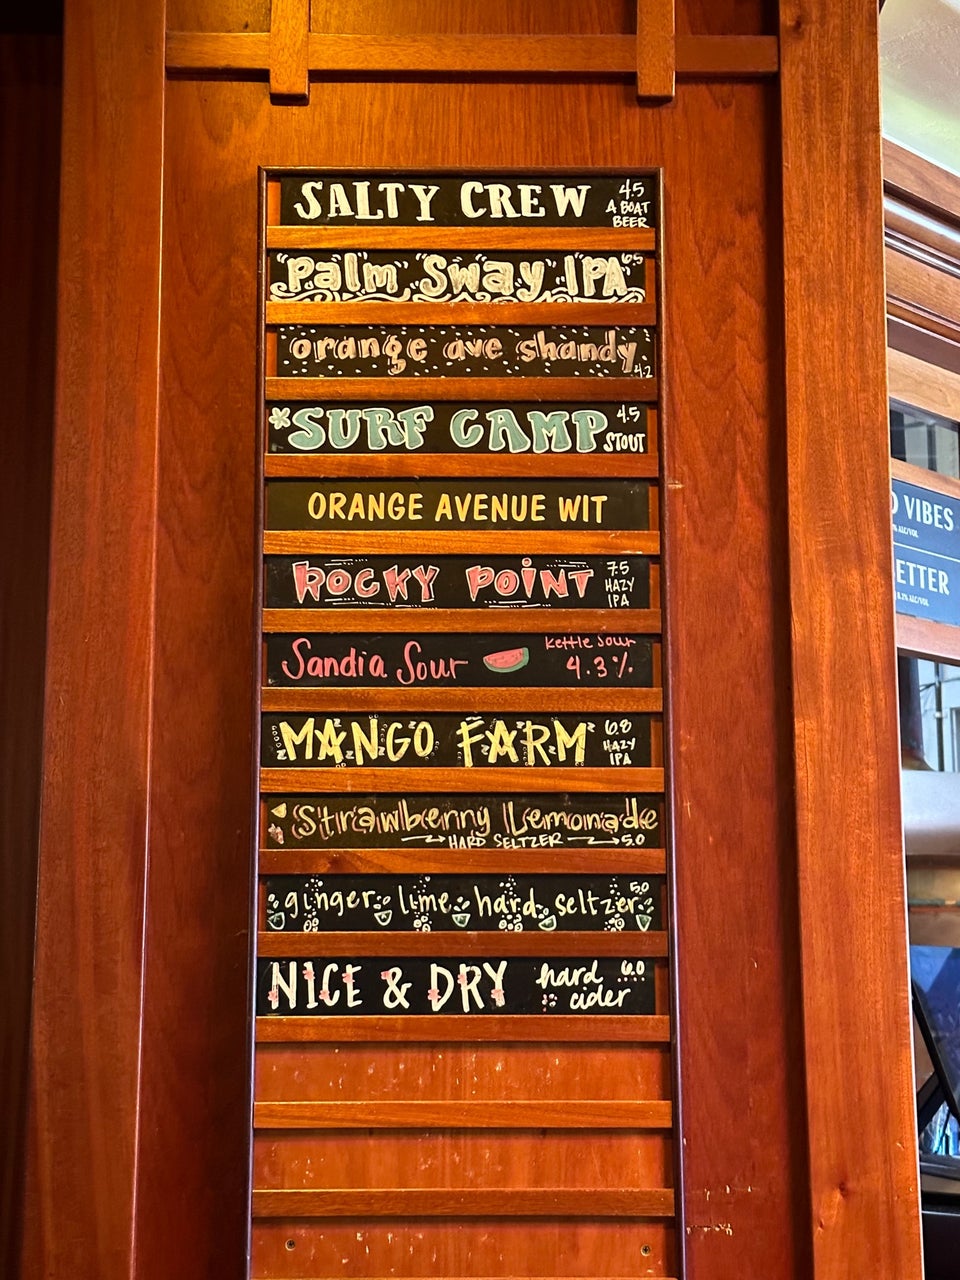 SALTY CREW 4.5
A BOAT
BEER
Palm Sway IPA 6.5
orange ave shandy
4.2
*SURF CAMP 4.5
STOUT
ORANGE AVENUE WIT
ROCKY POINT 7.5
HAZY
IPA
Sandia Sour Kettle Sour
4.3%
MANGO FARM 6.8
HAZY
IPA
Strawberry Lemonade
HARD SELTZER 5.0
ginger lime hard seltzer 5.0
NICE & DRY hard 6.0
cider
VIBES
ALC/VOL
ETTER
8.2% ALC/VOL